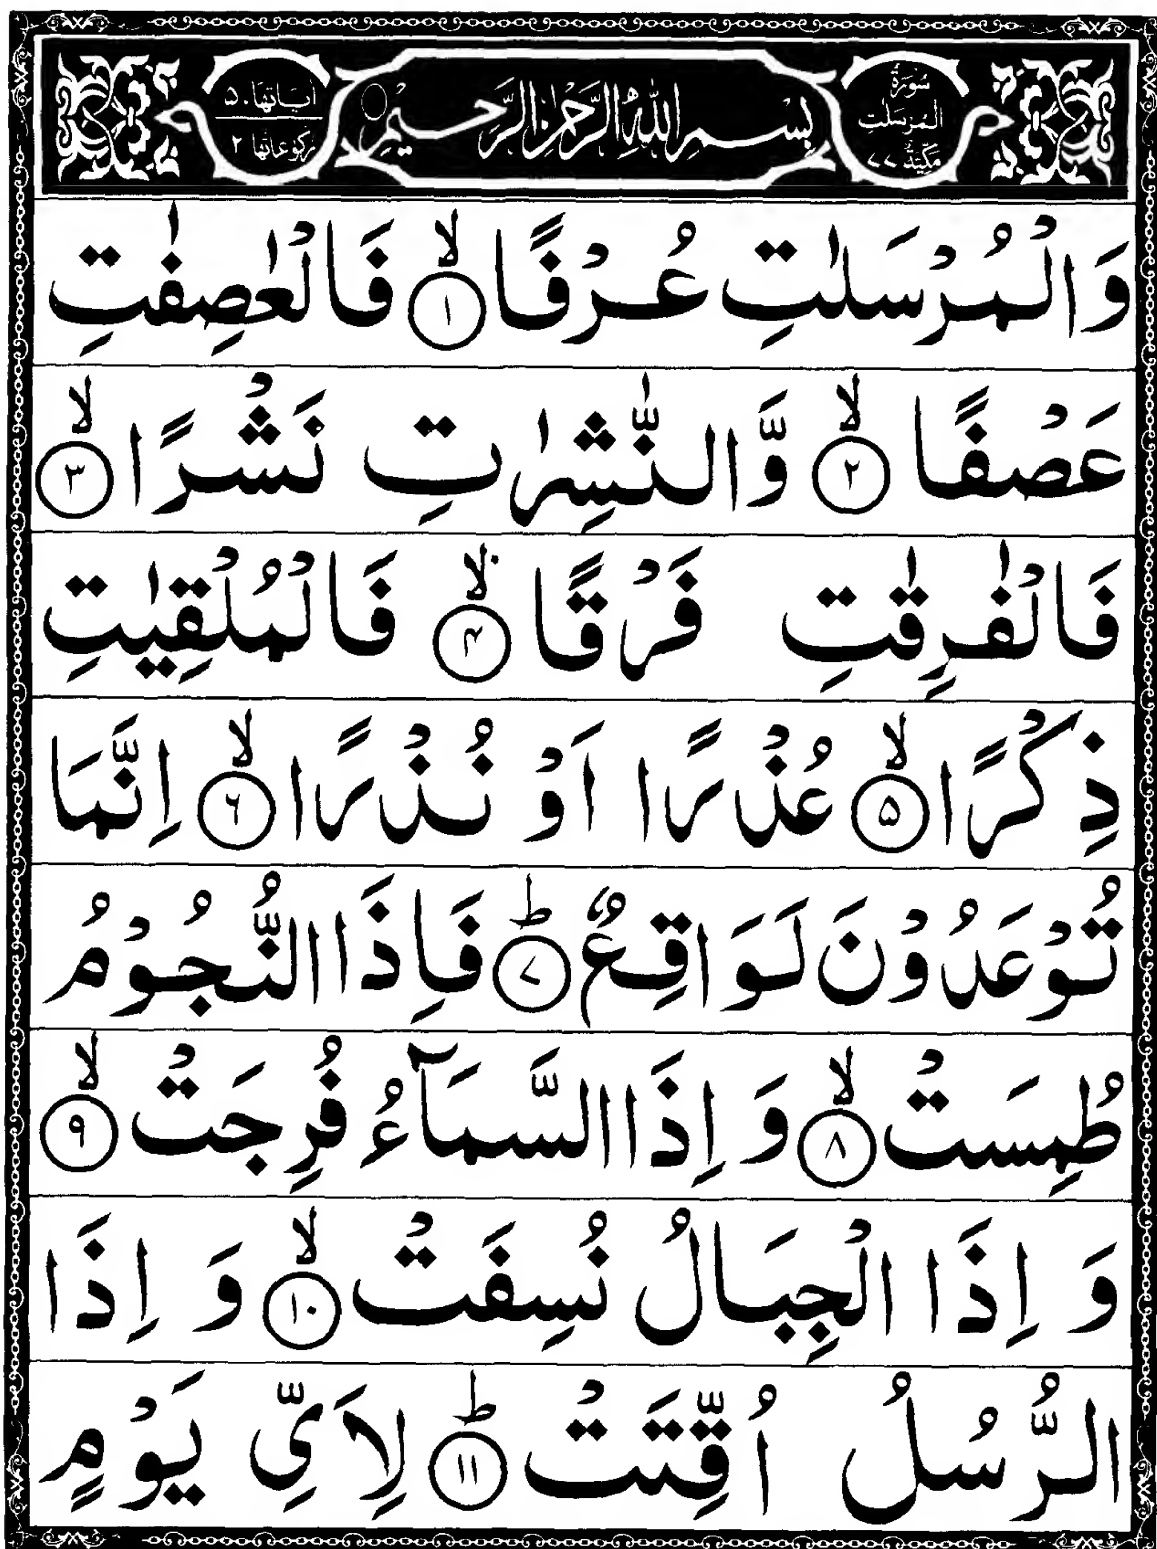 سُوْرَةُ
الْمُرْسَلٰت
مَكِّيَّةٌ ٧٧
بِسْمِ اللّٰهِ الرَّحْمٰنِ الرَّحِيْمِ
اٰيَاتُهَا ۵۰
رُكُوْعَاتُهَا ۲
وَالْمُرْسَلٰتِ عُرْفًا ۙ﴿۱﴾ فَالْعٰصِفٰتِ
عَصْفًا ۙ﴿۲﴾ وَّالنّٰشِرٰتِ نَشْرًا ۙ﴿۳﴾
فَالْفٰرِقٰتِ فَرْقًا ۙ﴿۴﴾ فَالْمُلْقِيٰتِ
ذِكْرًا ۙ﴿۵﴾ عُذْرًا اَوْ نُذْرًا ۙ﴿۶﴾ اِنَّمَا
تُوْعَدُوْنَ لَوَاقِعٌ ؕ﴿۷﴾ فَاِذَا النُّجُوْمُ
طُمِسَتْ ۙ﴿۸﴾ وَ اِذَا السَّمَآءُ فُرِجَتْ ۙ﴿۹﴾
وَ اِذَا الْجِبَالُ نُسِفَتْ ۙ﴿۱۰﴾ وَ اِذَا
الرُّسُلُ اُقِّتَتْ ؕ﴿۱۱﴾ لِاَيِّ يَوْمٍ